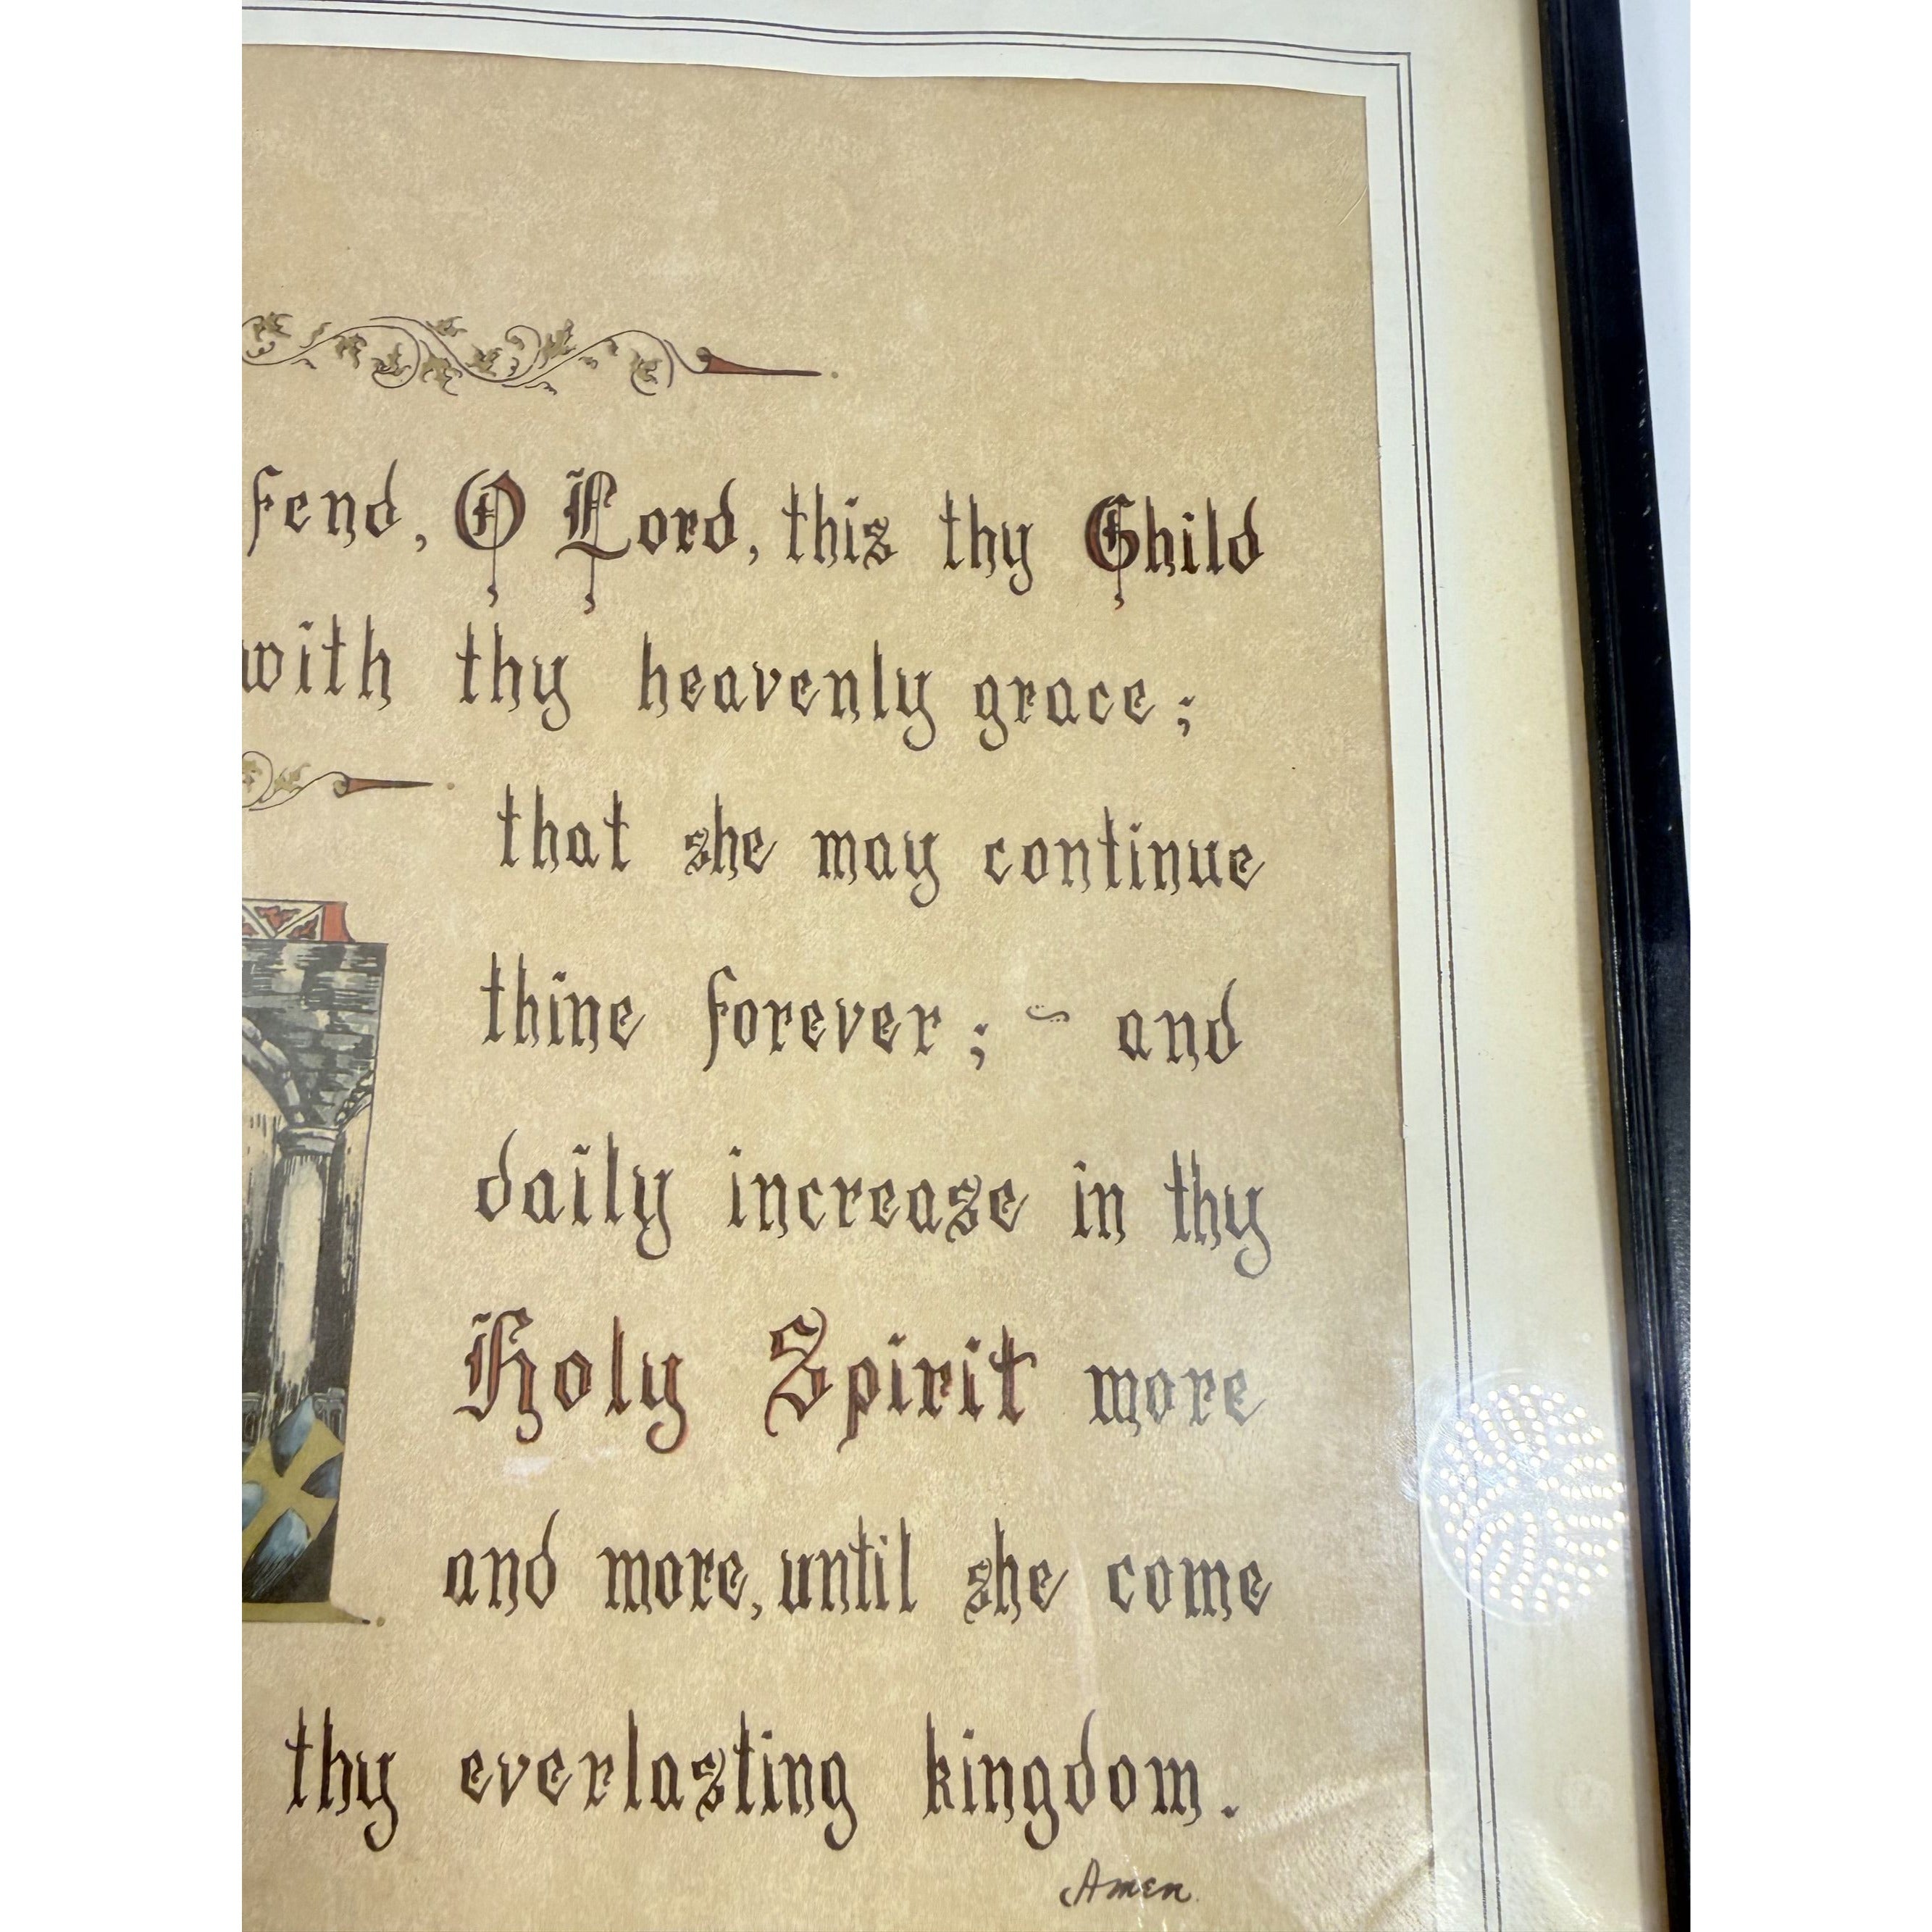 fend, O Lord, this thy Child
with thy heavenly grace;
that she may continue
thine forever; ~ and
daily increase in thy
Holy Spirit more
and more, until she come
thy everlasting kingdom.
Amen.